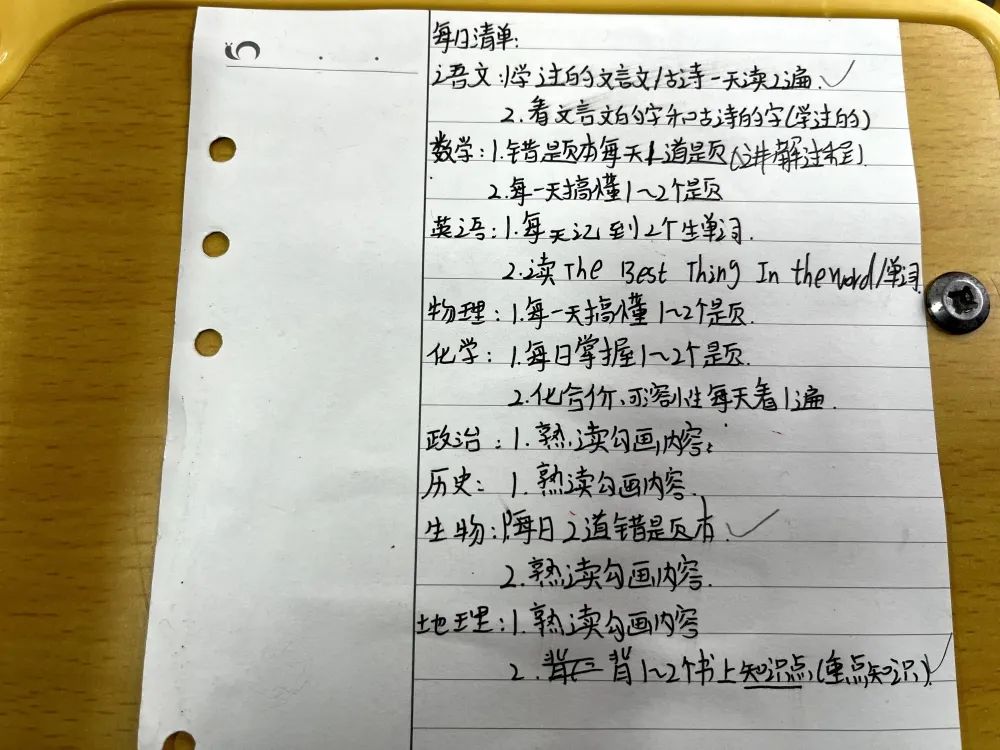 每日清单:
语文:1.学过的文言文/古诗一天读2遍.
2.看文言文的字和古诗的字(学过的)
数学:1.错题本每天1道题(讲解过程).
2.每一天搞懂1~2个题
英语:1.每天记到12个生单词.
2.读The Best Thing In the word/单词
物理:1.每一天搞懂1~2个题.
化学:1.每日掌握1~2个题.
2.化合价、可溶性每天看1遍.
政治:1.熟读勾画内容.
历史:1.熟读勾画内容.
生物:1.每日2道错题本.
2.熟读勾画内容.
地理:1.熟读勾画内容
2.背1~2个书上知识点(重点知识).